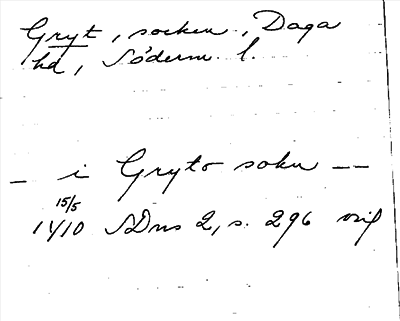 Gryt, socken, Daga
hd, Söderm. l.
— i Gryto sokn — —
15/5
1410 SDns 2, s. 296 orig